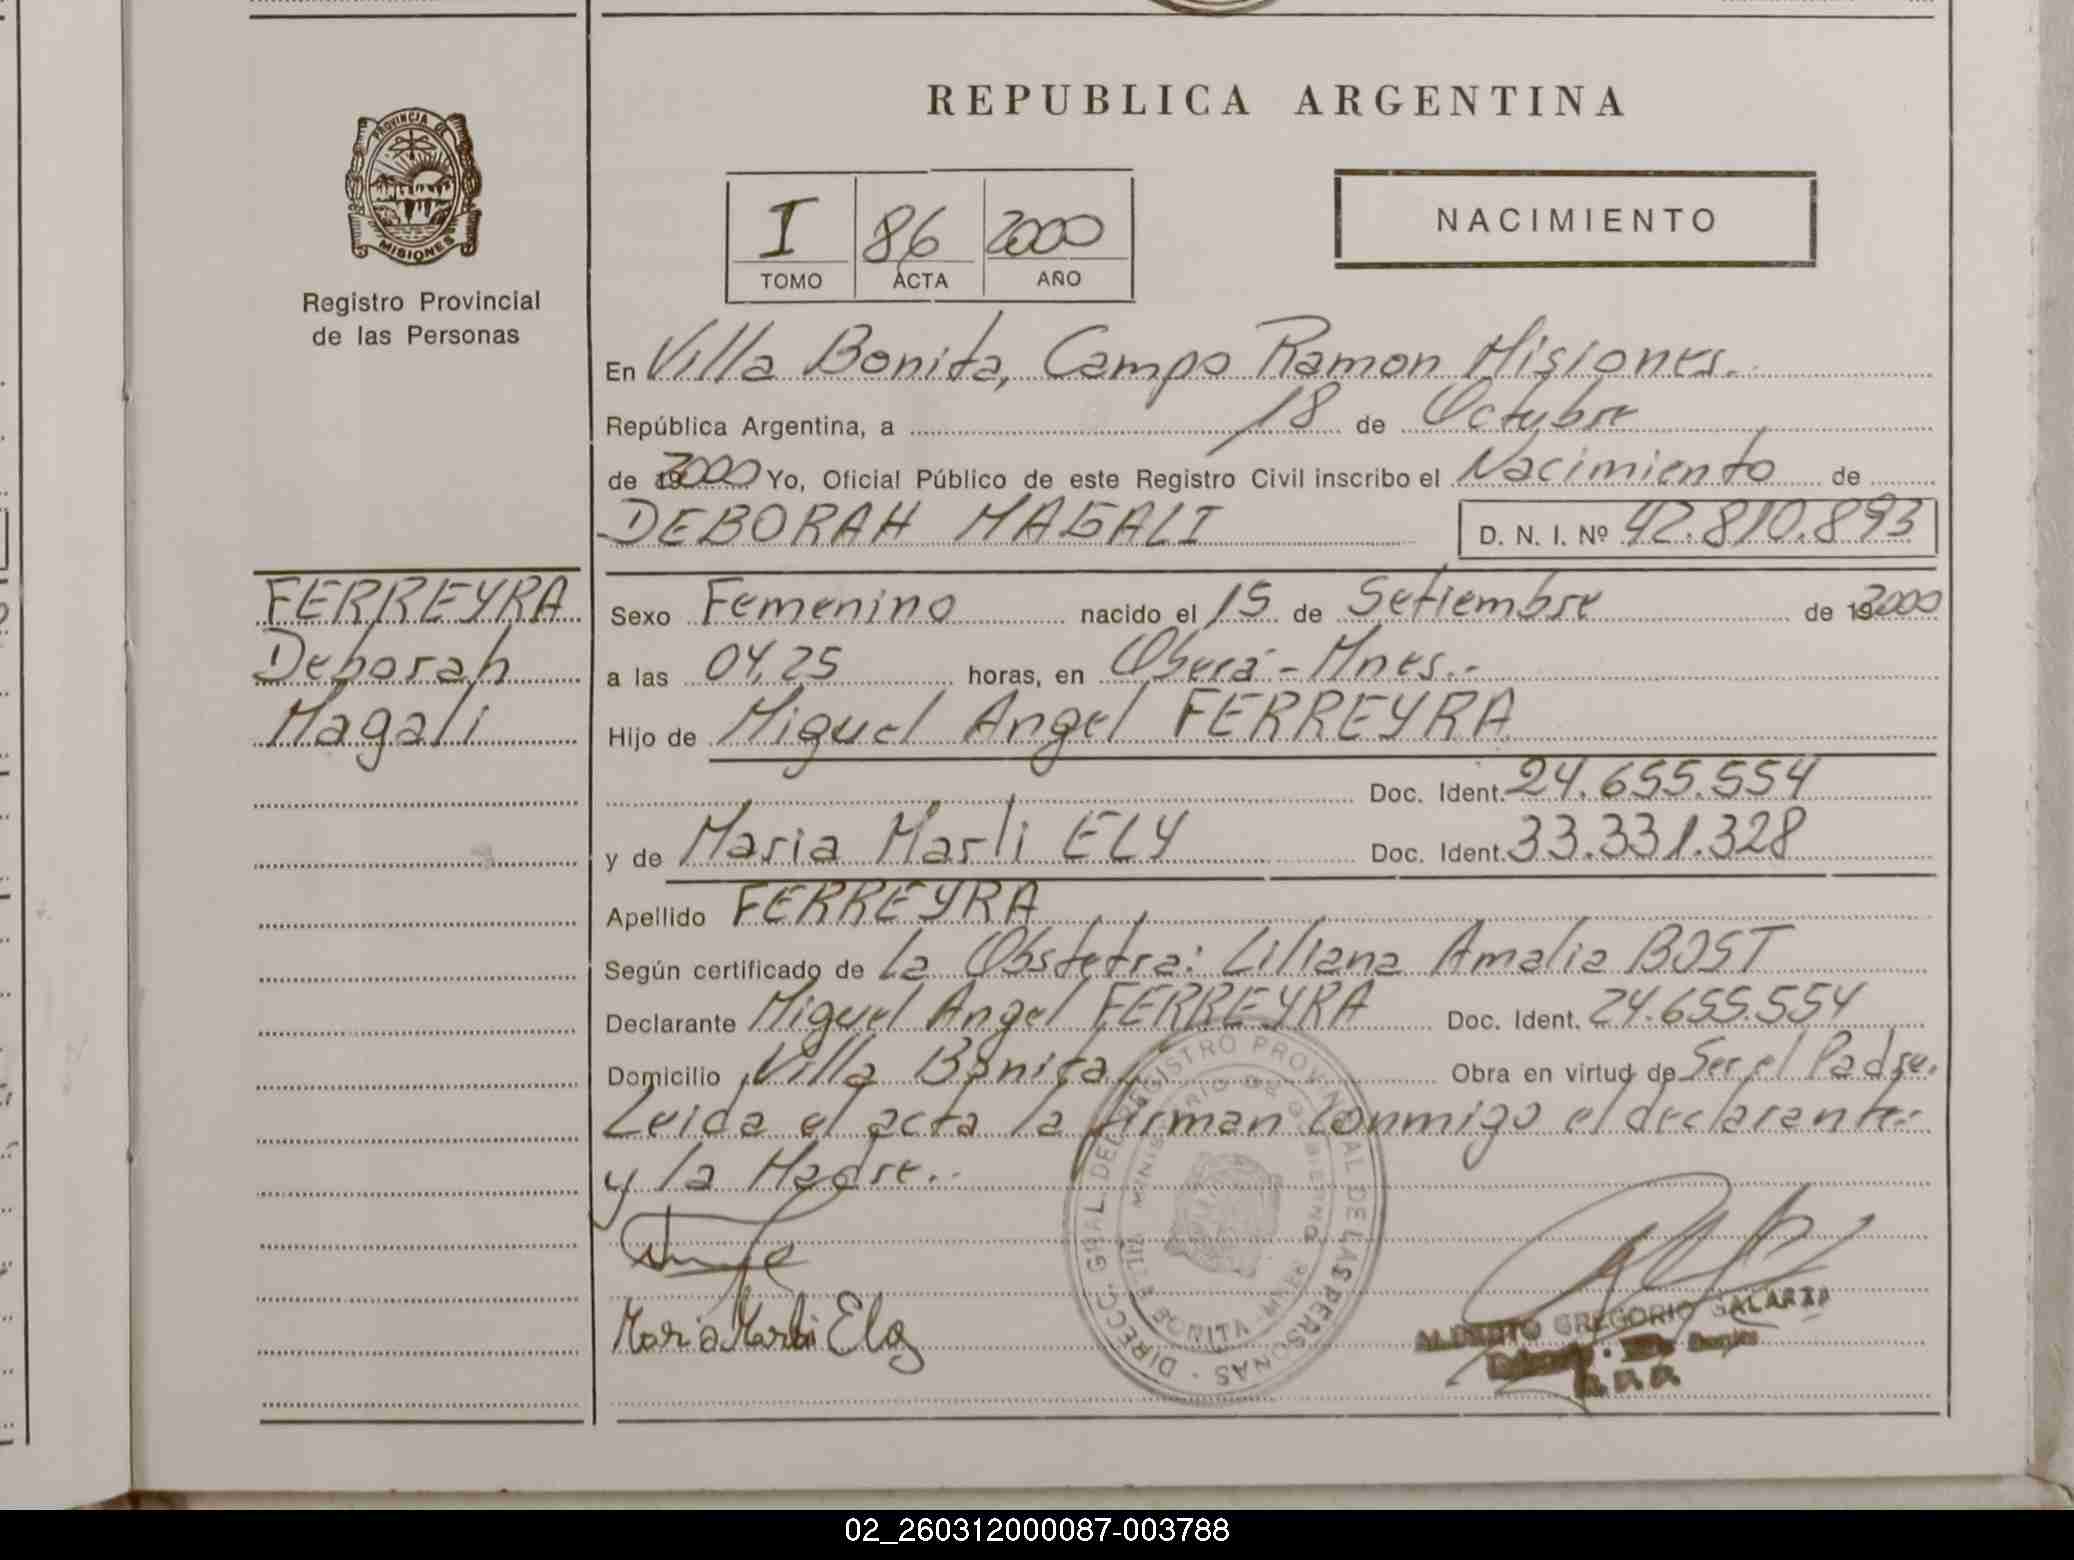 REPUBLICA ARGENTINA
PROVINCIA DE
MISIONES
Registro Provincial
de las Personas
I 86 2000
TOMO ACTA AÑO
NACIMIENTO
En Villa Bonita, Campo Ramon Misiones.
República Argentina, a 18 de Octubre
de 2000 Yo, Oficial Público de este Registro Civil inscribo el Nacimiento de
DEBORAH MAGALI D. N. I. Nº 42.810.893
FERREYRA
Deborah
Magali
Sexo Femenino nacido el 15 de Setiembre de 2000
a las 04,25 horas, en Oberá - Mnes.-
Hijo de Miguel Angel FERREYRA
Doc. Ident. 24.655.554
y de Maria Marli ELY Doc. Ident. 33.331.328
Apellido FERREYRA
Según certificado de la Obstetra: Liliana Amalia BOST
Declarante Miguel Angel FERREYRA Doc. Ident. 24.655.554
Domicilio Villa Bonita Obra en virtud de Ser el Padre.
Leida el acta la firman conmigo el declarante
y la Madre.
DIRECC. GRAL. DEL REGISTRO PROVINCIAL DE LAS PERSONAS
MINISTERIO DE GOBIERNO
BONITA
Maria Marli Ely
GREGORIO GALARZA
02_260312000087-003788